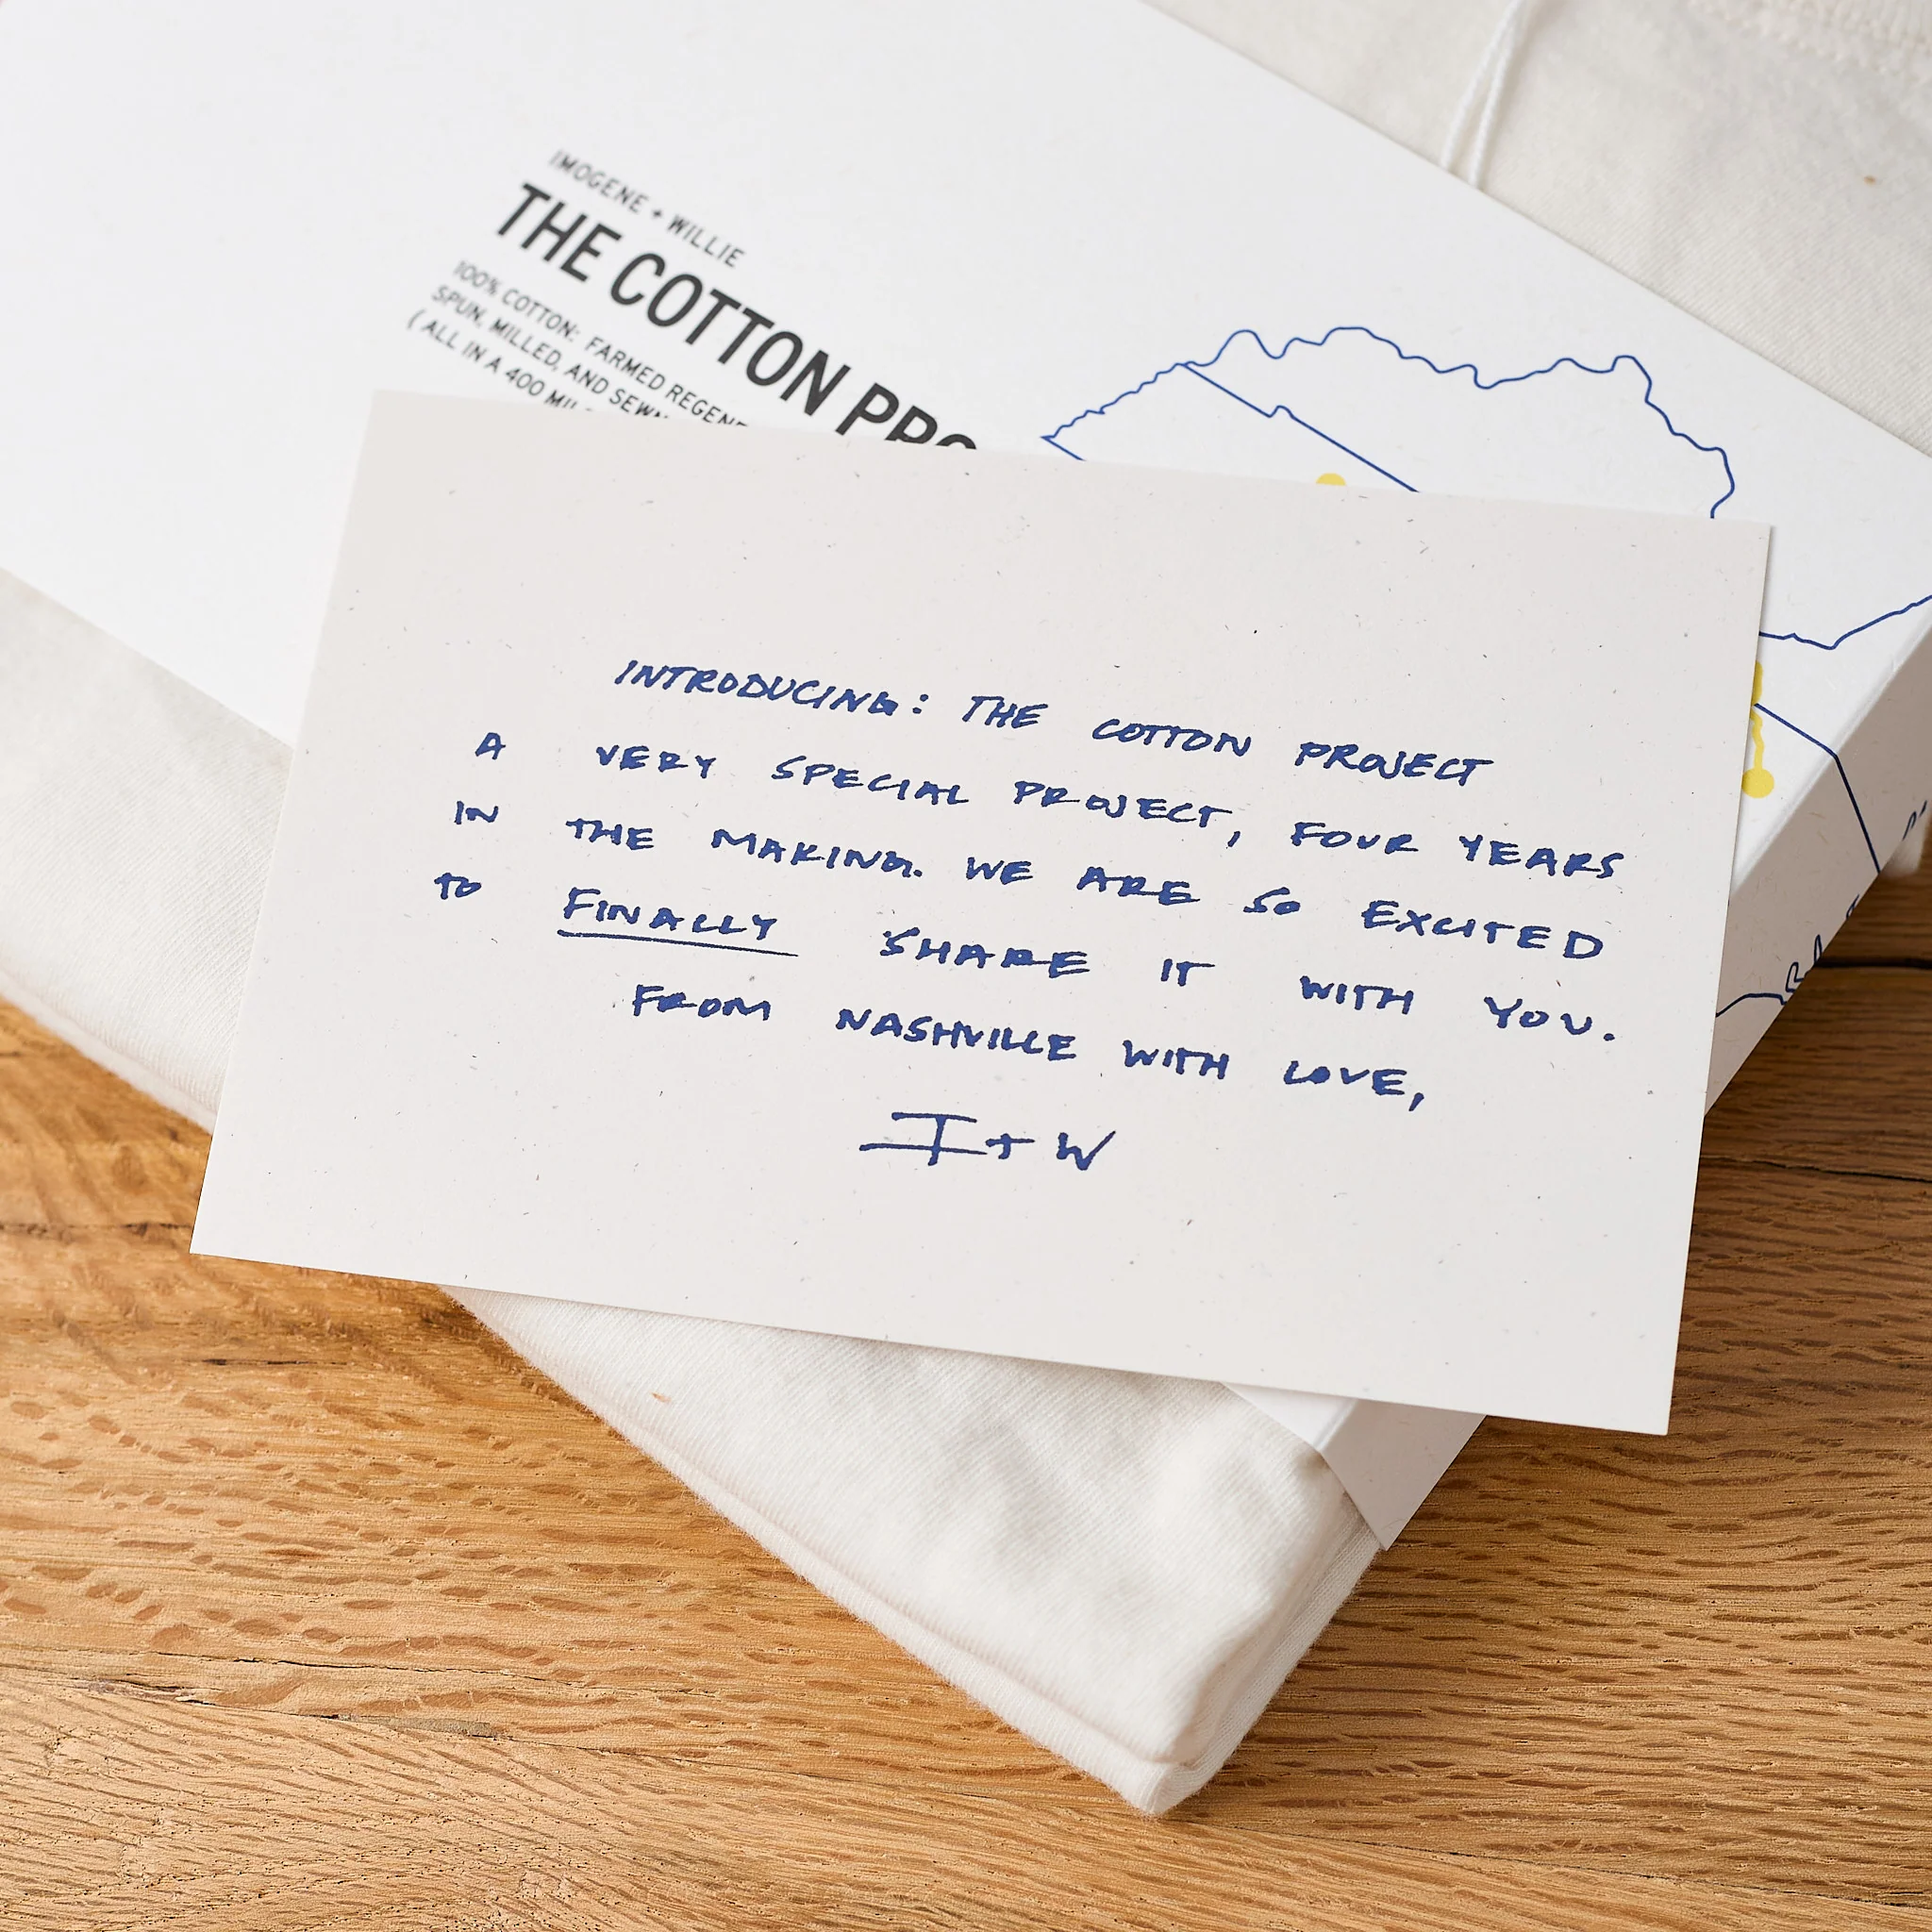 IMOGENE + WILLIE
THE COTTON
100% COTTON: FARMED
SPUN, MILLED, AND SEWN
( ALL IN A 400
INTRODUCING: THE COTTON PROJECT
A VERY SPECIAL PROJECT, FOUR YEARS
IN THE MAKING. WE ARE SO EXCITED
TO FINALLY SHARE IT WITH YOU.
FROM NASHVILLE WITH LOVE,
I + W